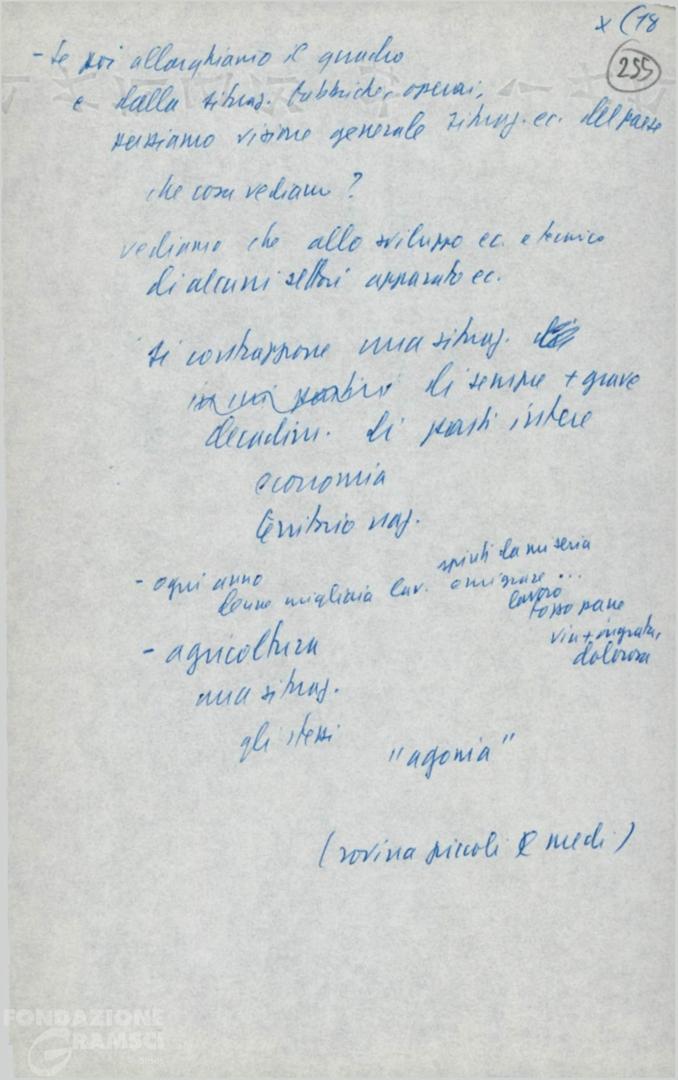 x (18
255
- se poi allarghiamo il quadro
e dalla situaz. fabbriche, operai,
passiamo visione generale situaz. ec. del paese
che cosa vediamo?
vediamo che allo sviluppo ec. e tecnico
di alcuni settori apparato ec.
si contrappone una situaz.
di sempre + grave
decadim. di parti intere
economia
territorio naz.
- ogni anno
decine migliaia lav. spinti da miseria
emigrare ...
lavoro
tozzo pane
via + ingrata,
dolorosa
- agricoltura
una situaz.
gli stessi
"agonia"
(rovina piccoli e medi)
FONDAZIONE
GRAMSCI